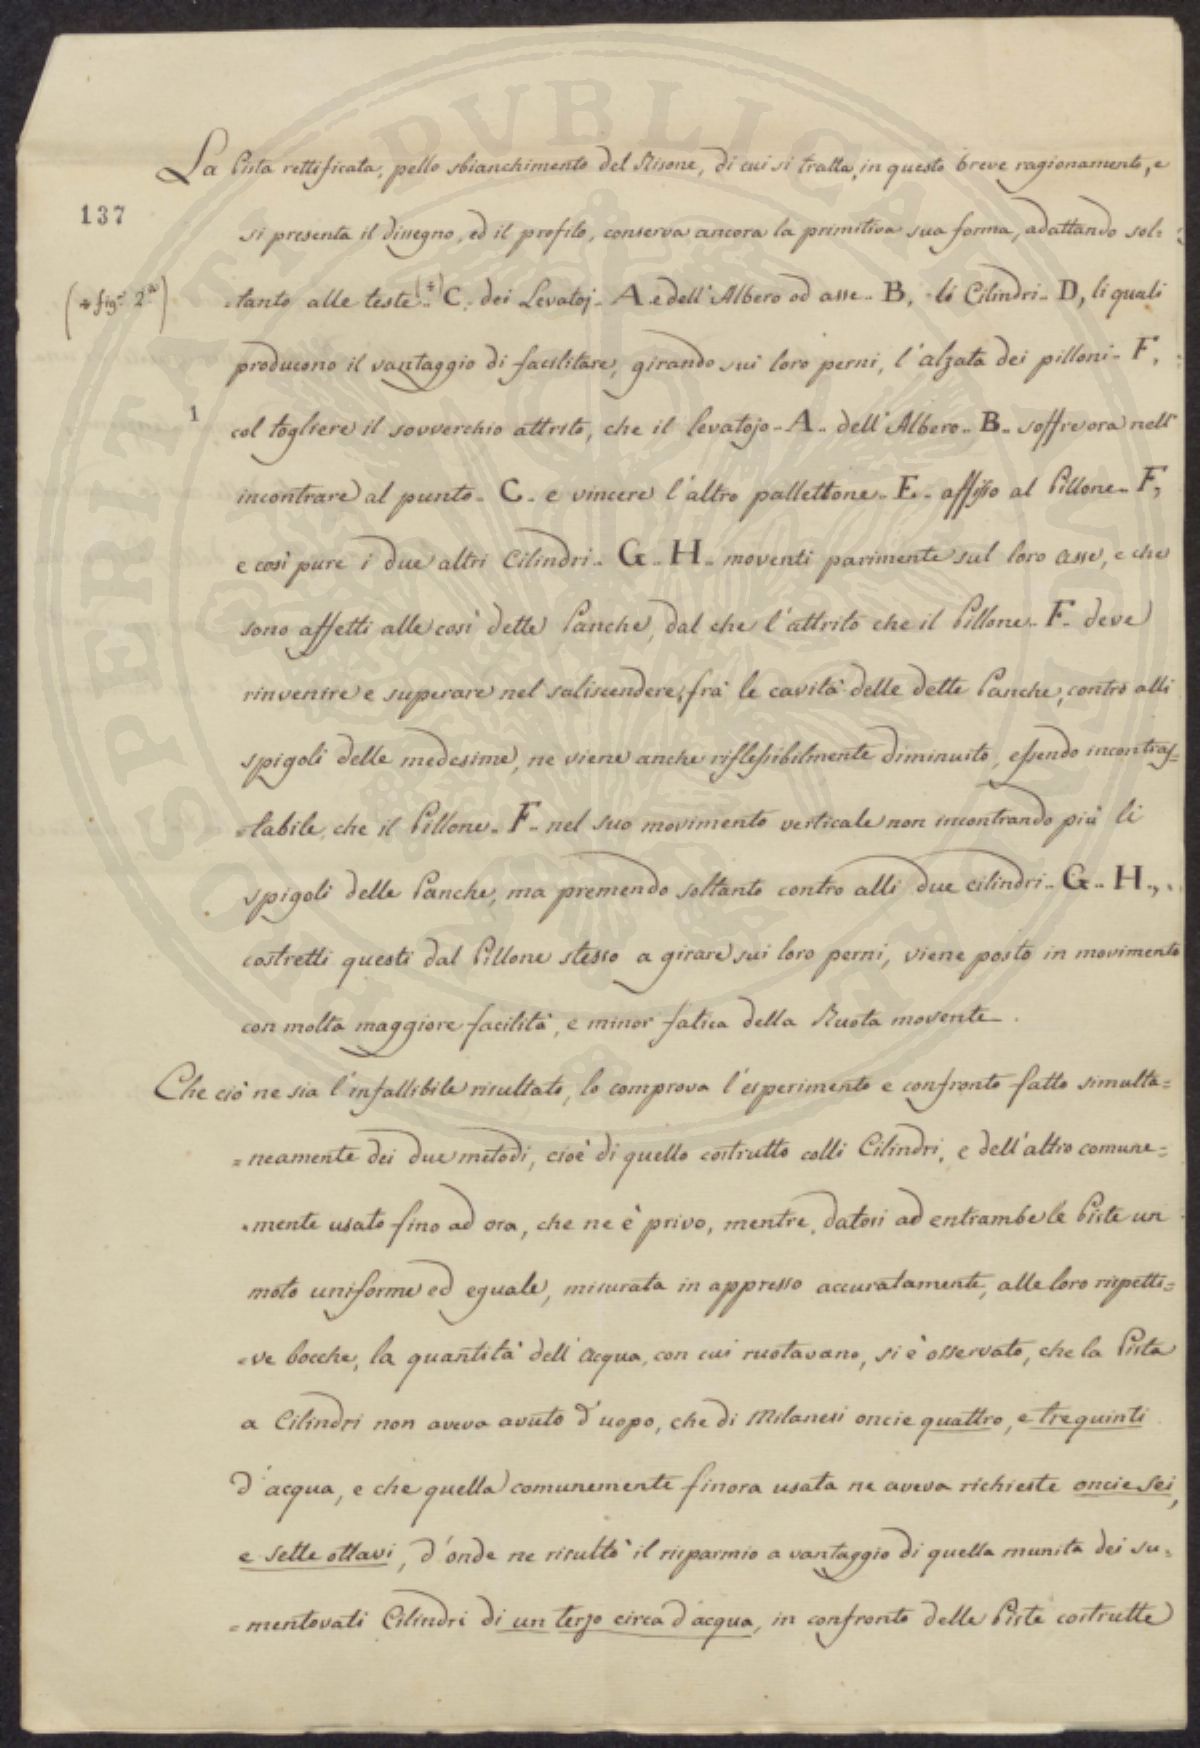 La Pista rettificata, pello sbianchimento del Risone, di cui si tratta, in questo breve ragionamento, e
137
si presenta il dissegno, ed il profilo, conserva ancora la primitiva sua forma, adattando sol=
(* fig.ª 2ª)
=tanto alle teste (*) C. dei Levatoj - A e dell' Albero od asse - B, li Cilindri - D, li quali
producono il vantaggio di facilitare, girando sui loro perni, l'alzata dei pilloni - F,
1
col togliere il sovverchio attrito, che il levatojo - A - dell' Albero - B - soffre ora nell'
incontrare al punto - C - e vincere l'altro pallettone - E - affisso al Pillone - F,
e così pure i due altri Cilindri - G - H - moventi parimente sul loro asse, e che
sono affetti alle così dette Panche, dal che l'attrito che il Pillone - F - deve
rinvenire e superare nel saliscendere, frà le cavità delle dette Panche, contro alli
spigoli delle medesime, ne viene anche riflessibilmente diminuito, essendo incontras=
=tabile, che il Pillone - F - nel suo movimento verticale non incontrando più li
spigoli delle Panche, ma premendo soltanto contro alli due cilindri - G - H -,
costretti questi dal Pillone stesso a girare sui loro perni, viene posto in movimento
con molta maggiore facilità, e minor fatica della Ruota movente.
Che ciò ne sia l'infallibile risultato, lo comprova l'esperimento e confronto fatto simulta=
=neamente dei due metodi, cioè di quello costrutto colli Cilindri, e dell'altro comune=
=mente usato fino ad ora, che ne è privo, mentre, datosi ad entrambe le Piste un
moto uniforme ed eguale, misurata in appresso accuratamente, alle loro rispetti=
=ve bocche, la quantità dell' acqua, con cui ruotavano, si è osservato, che la Pista
a Cilindri non aveva avuto d'uopo, che di Milanesi oncie quattro, e tre quinti
d'acqua, e che quella comunemente finora usata ne aveva richieste oncie sei,
e sette ottavi, d'onde ne risultò il risparmio a vantaggio di quella munita dei su=
=mentovati Cilindri di un terzo circa d'acqua, in confronto delle Piste costrutte
PROSPERITATI PVBLICAE AVGENDAE